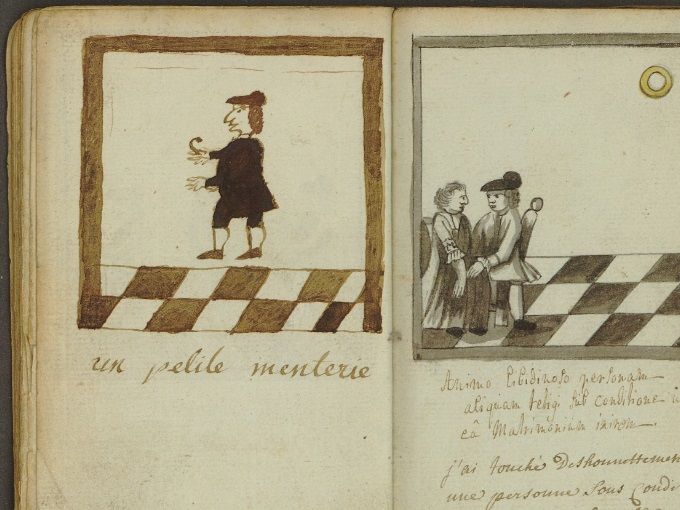 un petite menterie
Animo libidinoso personam
aliquam tetigi sub conditione
eâ Matrimonium inirem
j'ai touché Deshonnettemen
une personne Sous Condi